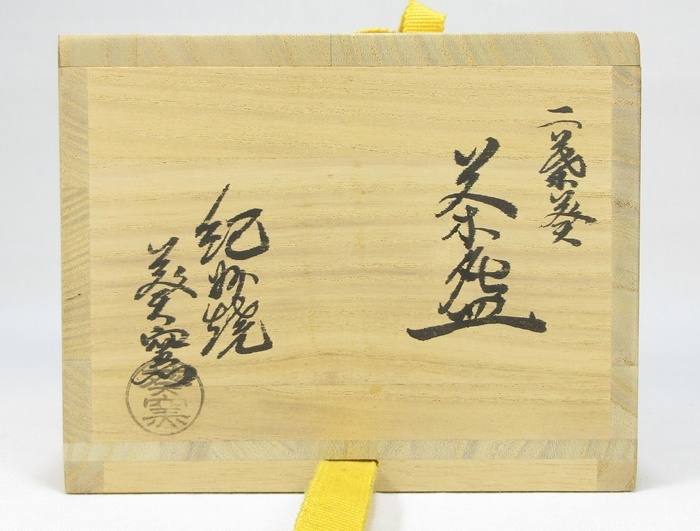 二葉葵
茶盌
紀州焼
葵窯
葵窯